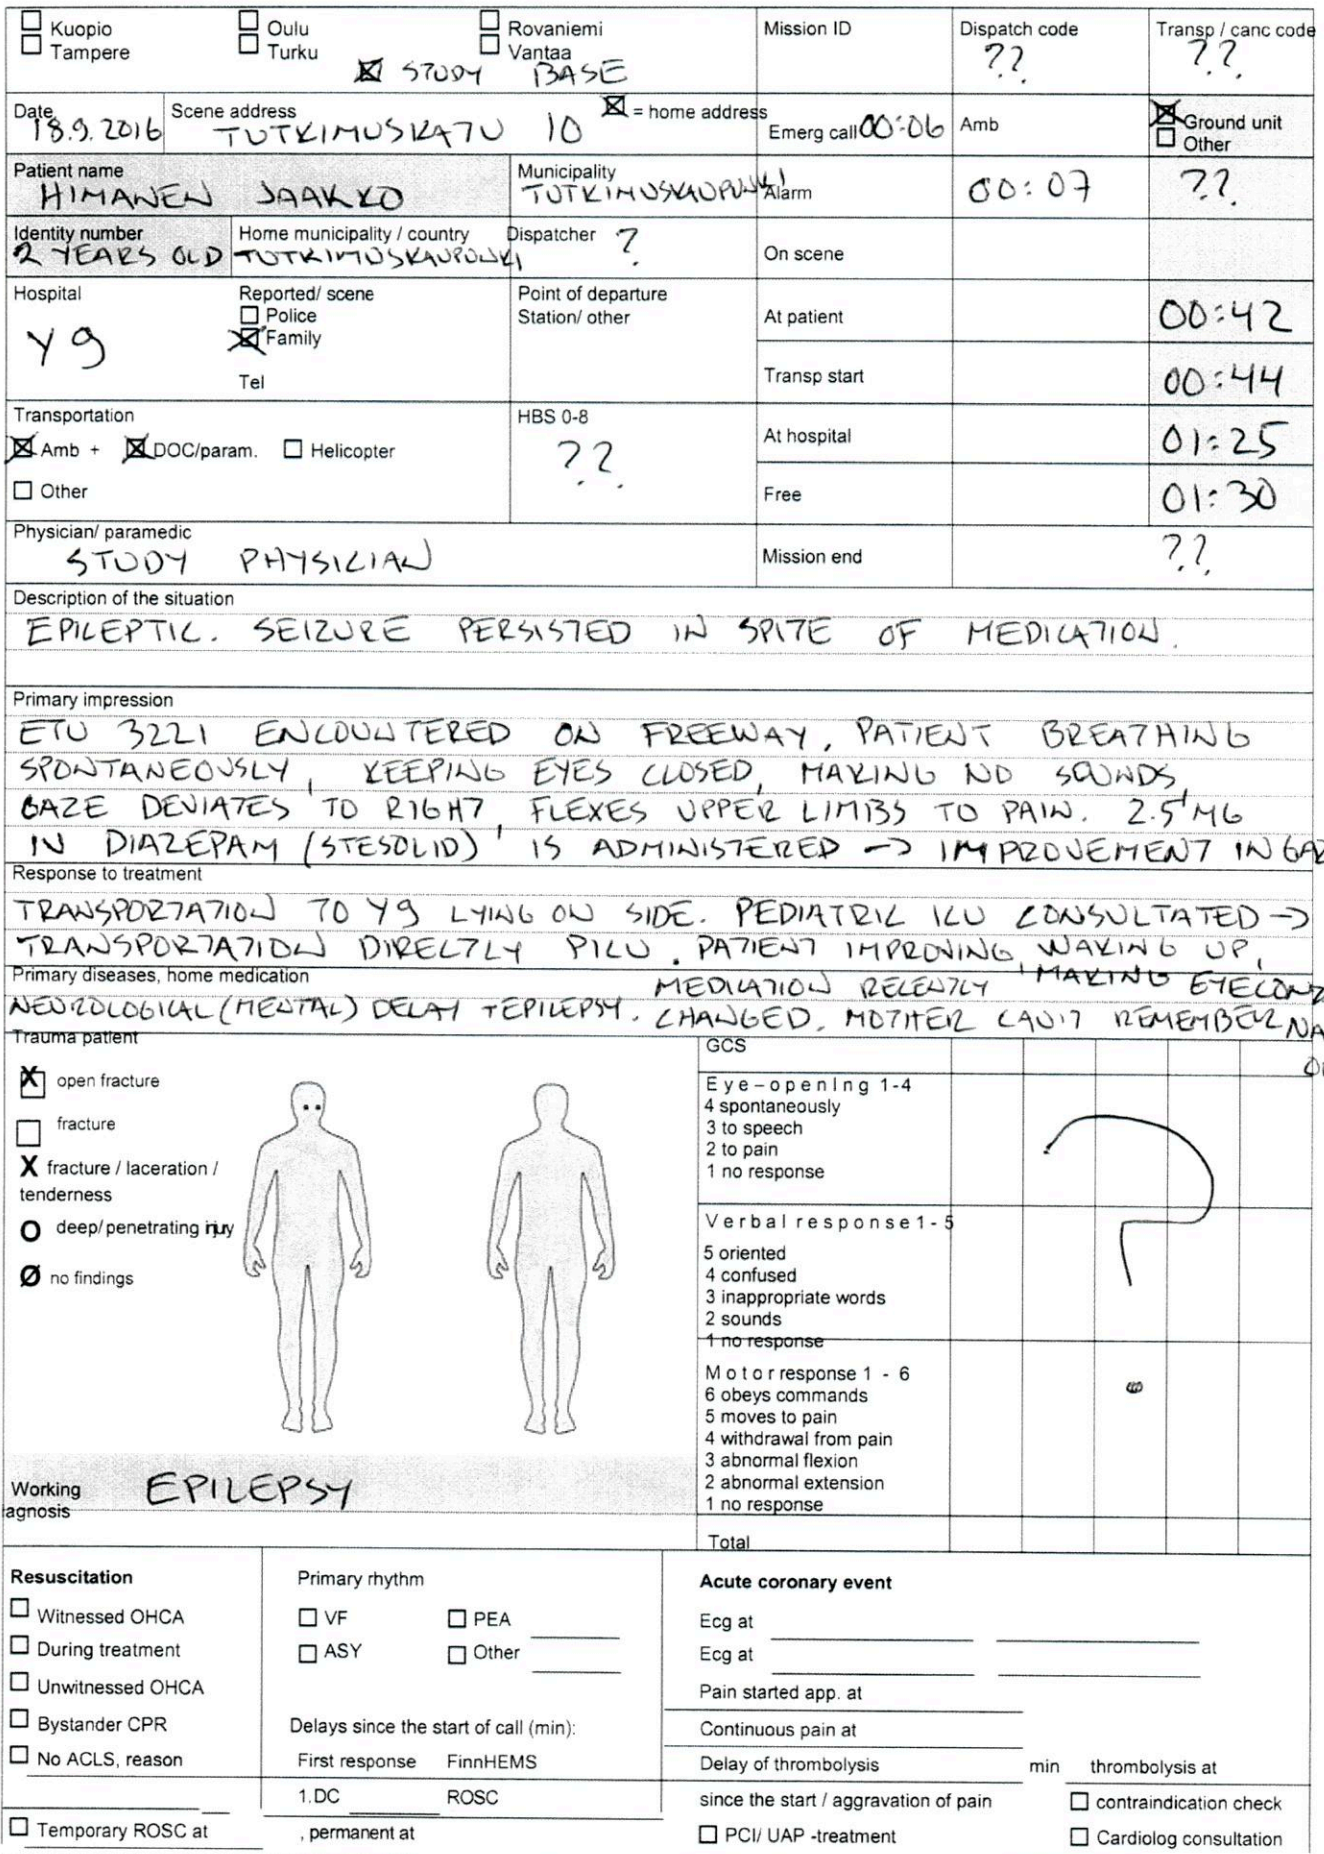 ☐ Kuopio ☐ Oulu ☐ Rovaniemi Mission ID Dispatch code Transp / canc code
☐ Tampere ☐ Turku ☐ Vantaa ?? ??
☒ STUDY BASE
Date Scene address ☒ = home address Emerg call 00:06 Amb ☒ Ground unit
18.9.2016 TUTKIMUSKATU 10 ☐ Other
Patient name Municipality Alarm 00:07 ??
HIMANEN JAAKKO TUTKIMUSKAUPUNKI
Identity number Home municipality / country Dispatcher ? On scene
2 YEARS OLD TUTKIMUSKAUPUNKI
Hospital Reported/ scene Point of departure At patient 00:42
Y9 ☐ Police Station/ other
☒ Family
Tel Transp start 00:44
Transportation HBS 0-8 At hospital 01:25
☒ Amb + ☒ DOC/param. ☐ Helicopter ??
☐ Other Free 01:30
Physician/ paramedic Mission end ??
STUDY PHYSICIAN
Description of the situation
EPILEPTIC. SEIZURE PERSISTED IN SPITE OF MEDICATION.
Primary impression
ETU 3221 ENCOUNTERED ON FREEWAY, PATIENT BREATHING
SPONTANEOUSLY, KEEPING EYES CLOSED, MAKING NO SOUNDS,
GAZE DEVIATES TO RIGHT, FLEXES UPPER LIMBS TO PAIN. 2.5 MG
IN DIAZEPAM (STESOLID) IS ADMINISTERED -> IMPROVEMENT IN GAZ
Response to treatment
TRANSPORTATION TO Y9 LYING ON SIDE. PEDIATRIC ICU CONSULTATED ->
TRANSPORTATION DIRECTLY PICU. PATIENT IMPROVING, WAKING UP,
MAKING EYECONT
Primary diseases, home medication
NEUROLOGICAL (MENTAL) DELAY + EPILEPSY. MEDICATION RECENTLY
CHANGED, MOTHER CAN'T REMEMBER NA
Trauma patient
X open fracture
☐ fracture
X fracture / laceration /
tenderness
O deep/ penetrating injury
Ø no findings
Working EPILEPSY
agnosis
GCS
Eye-opening 1-4
4 spontaneously
3 to speech
2 to pain
1 no response
?
Verbal response 1-5
5 oriented
4 confused
3 inappropriate words
2 sounds
1 no response
Motor response 1 - 6
6 obeys commands
5 moves to pain
4 withdrawal from pain
3 abnormal flexion
2 abnormal extension
1 no response
Total
Resuscitation
☐ Witnessed OHCA
☐ During treatment
☐ Unwitnessed OHCA
☐ Bystander CPR
☐ No ACLS, reason
☐ Temporary ROSC at , permanent at
Primary rhythm
☐ VF ☐ PEA
☐ ASY ☐ Other
Delays since the start of call (min):
First response FinnHEMS
1.DC ROSC
Acute coronary event
Ecg at
Ecg at
Pain started app. at
Continuous pain at
Delay of thrombolysis min thrombolysis at
since the start / aggravation of pain ☐ contraindication check
☐ PCI/ UAP -treatment ☐ Cardiolog consultation